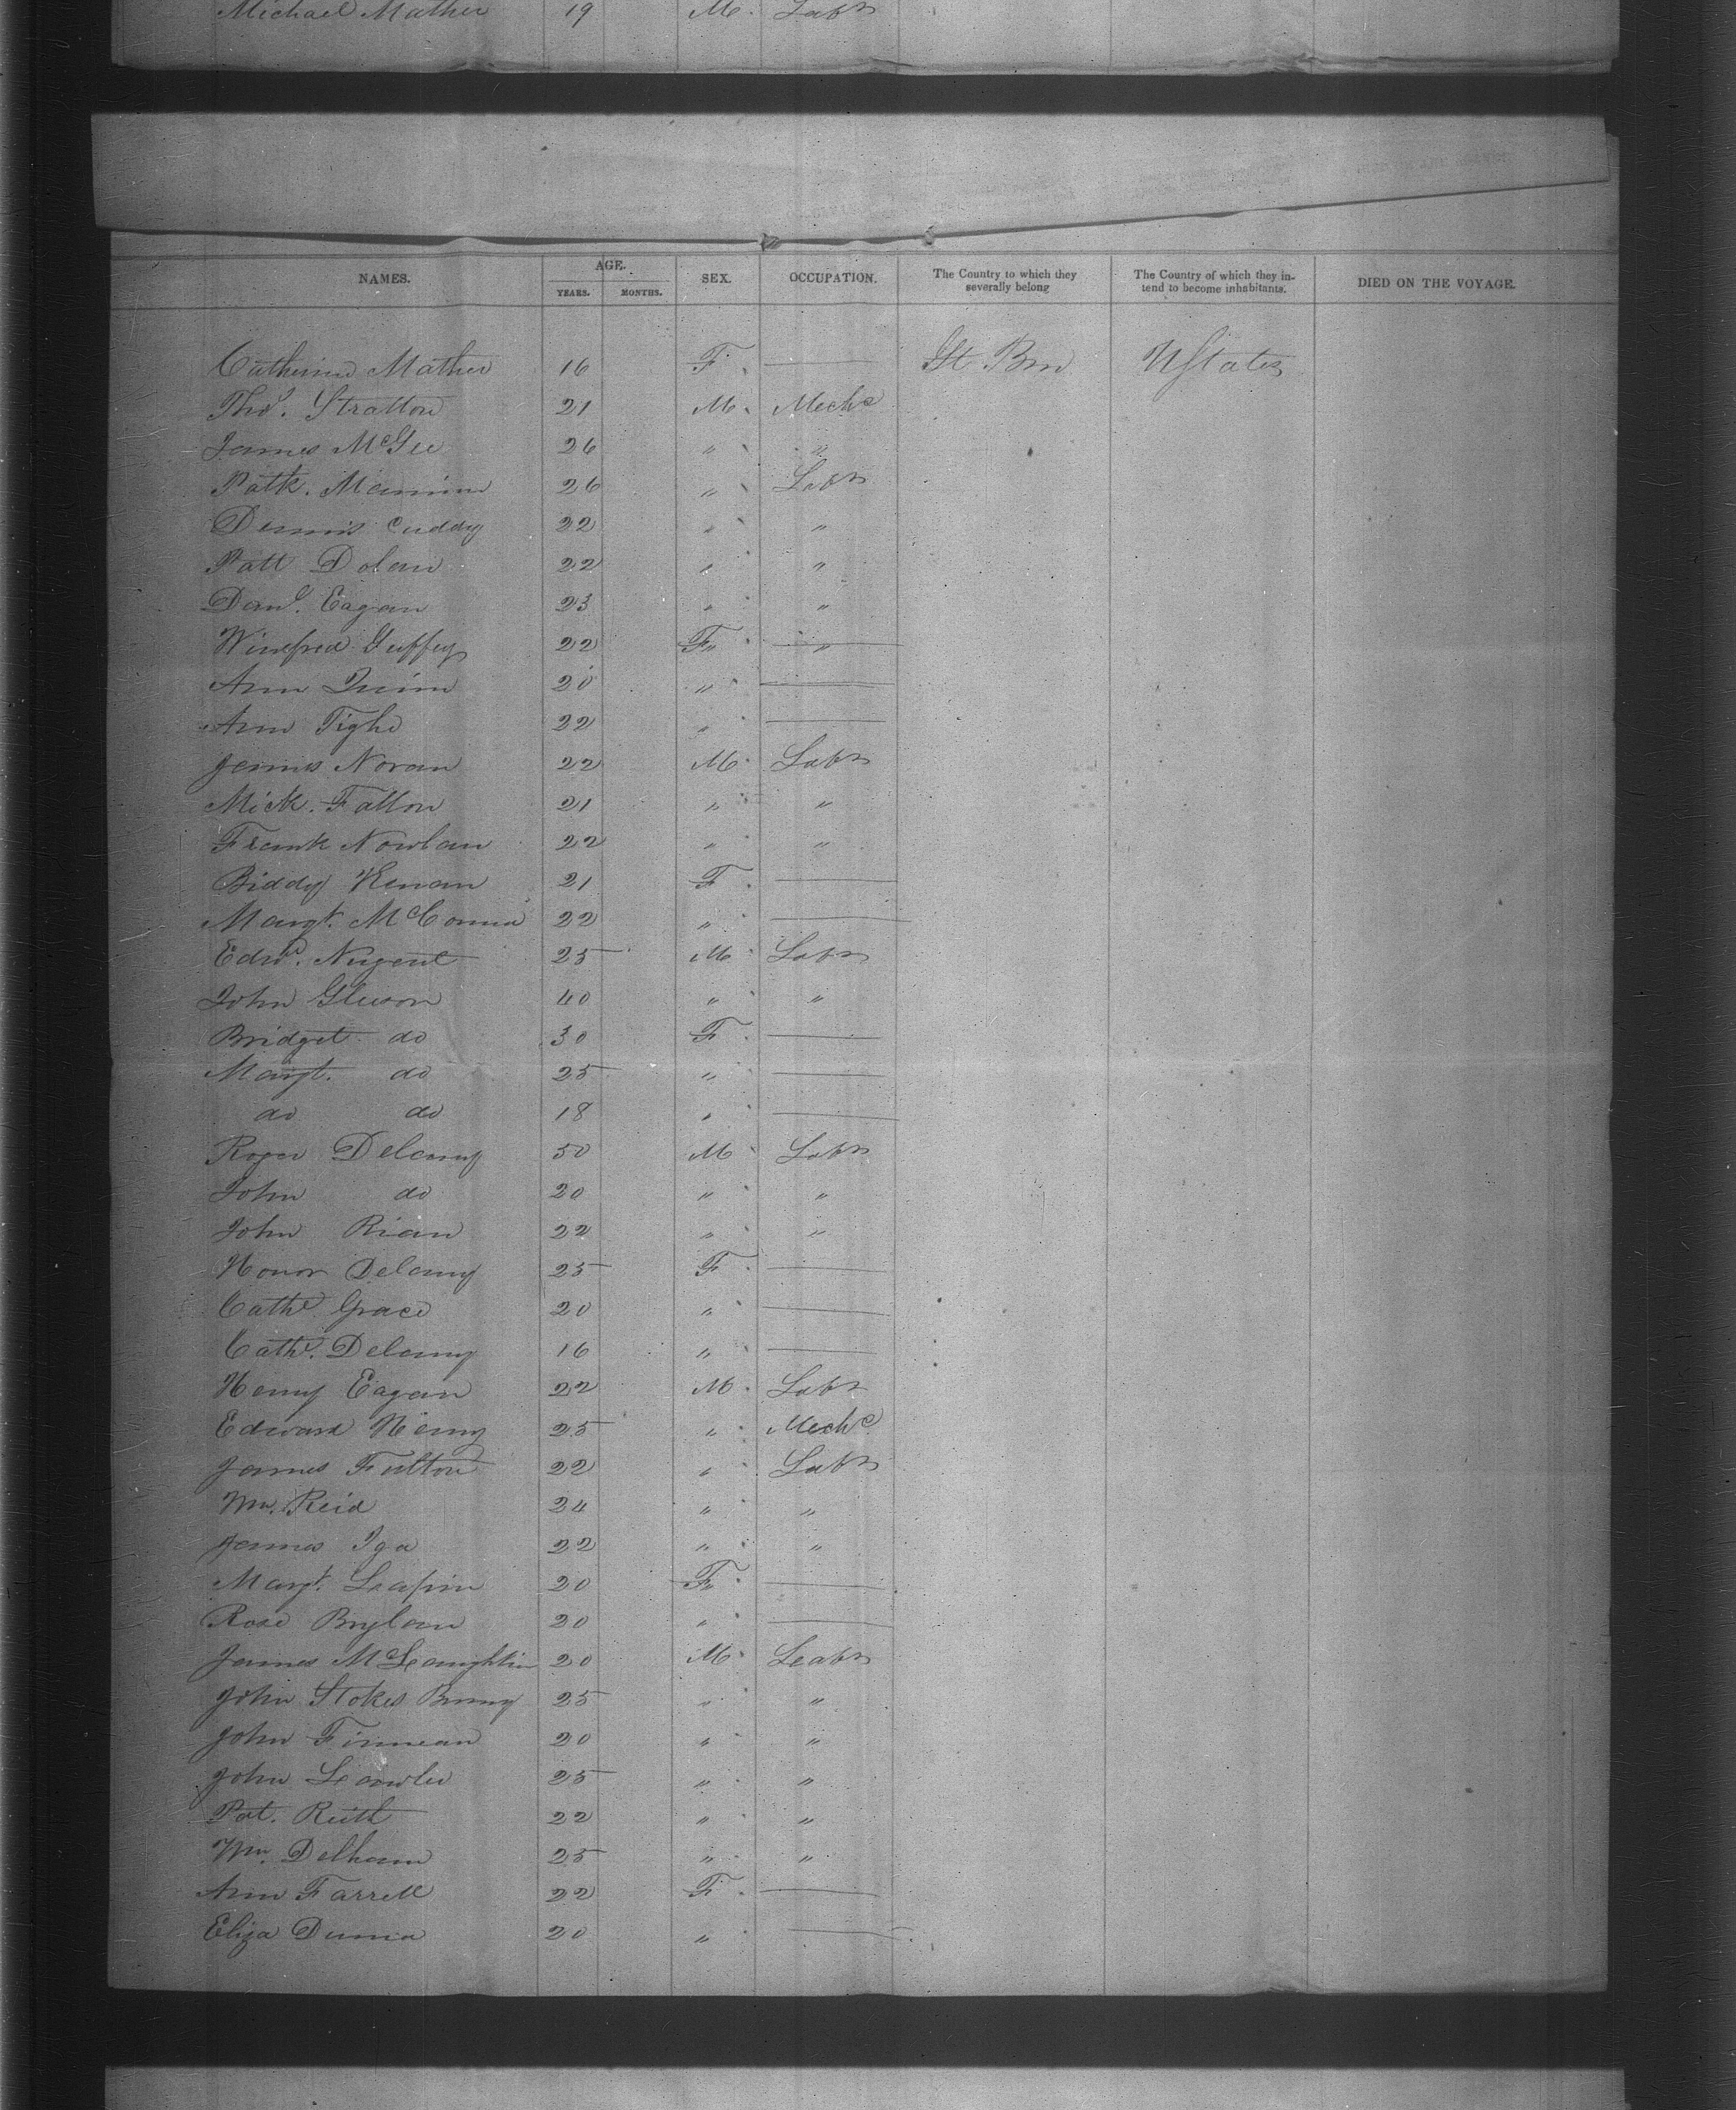 Michael Mather 19 M. Labr
NAMES. AGE. YEARS. MONTHS. SEX. OCCUPATION. The Country to which they severally belong The Country of which they in- tend to become inhabitants. DIED ON THE VOYAGE.
Catherine Mather 16 F. — Gt Brn UStates
Thos. Stratton 21 M. Mechc
James McGee 26 " "
Patk. Mannion 26 " Labr
Dennis Cuddy 22 " "
Patt Dolan 22 " "
Danl. Eagan 23 " "
Winefred Guffey 22 F " — "
Ann Quinn 20 " —
Ann Tighe 22 " —
James Noran 22 M. Labr
Mick. Fallon 21 " "
Frank Nowlan 22 " "
Biddy Kenan 21 F. —
Margt. 22 " —
Edwd. Nugent 25 M Labr
John Gleeson 40 " "
Bridget do 30 F. —
Margt. do 25 " —
do do 18 " —
Roger Delany 50 M Labr
John do 20 " "
John Rian 22 " "
Honor Delany 25 F. —
Cathe Grace 20 " —
Cathe. Delany 16 " —
Henry Eagan 22 M. Labr
Edward Henry 25 " Mechc
James Fulton 22 " Labr
Wm. Reid 24 " "
James Iga 22 " "
Margt. 20 F " —
Rose Brylan 20 " —
James McLaughlin 20 M. Labr
John Stokes 25 " "
John Finnean 20 " "
John Lawler 25 " "
Pat. Ruth 22 " "
Wm. Delham 25 " "
Ann Farrell 22 F. —
Eliza 20 " —